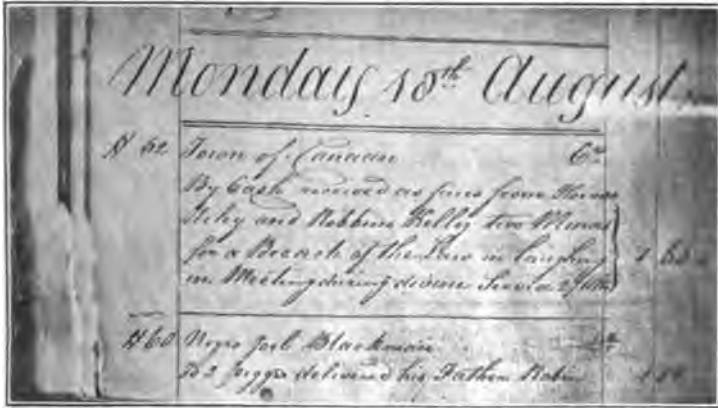 Monday 18th August
62 Town of Canaan Cr
By Cash received as fines from
and Robbins Kelly two Minors
for a Breach of the Law in laughing
in Meeting during divine Service
60 Negro Joel Blackman
To 2 piggs delivered his Father Robin